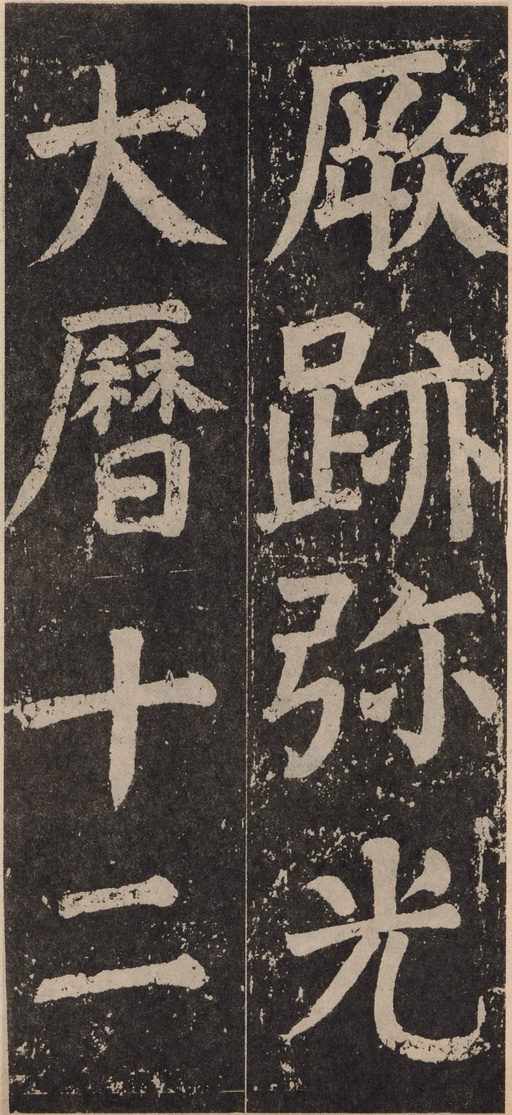 厥跡弥光
大曆十二